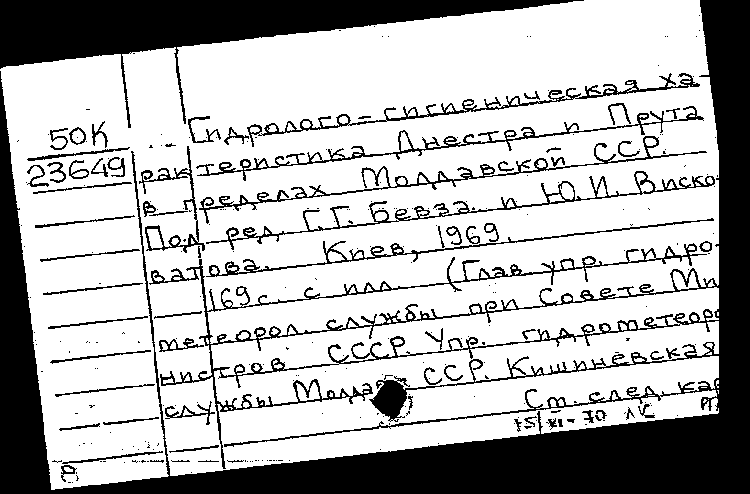 50К
23649
Гидролого-гигиеническая ха-
рактеристика Днестра и Прута
в пределах Молдавской ССР.
Под ред. Г.Г. Бевза. и Ю.И. Виско-
ватова. Киев, 1969.
169 с. с илл. (Глав упр. гидро-
метеорол. службы при Совете Ми
нистров СССР. Упр. гидрометеоро
службы Молдав ССР. Кишинёвская
Ст. след. кар
15/XI-70 ЛС
В